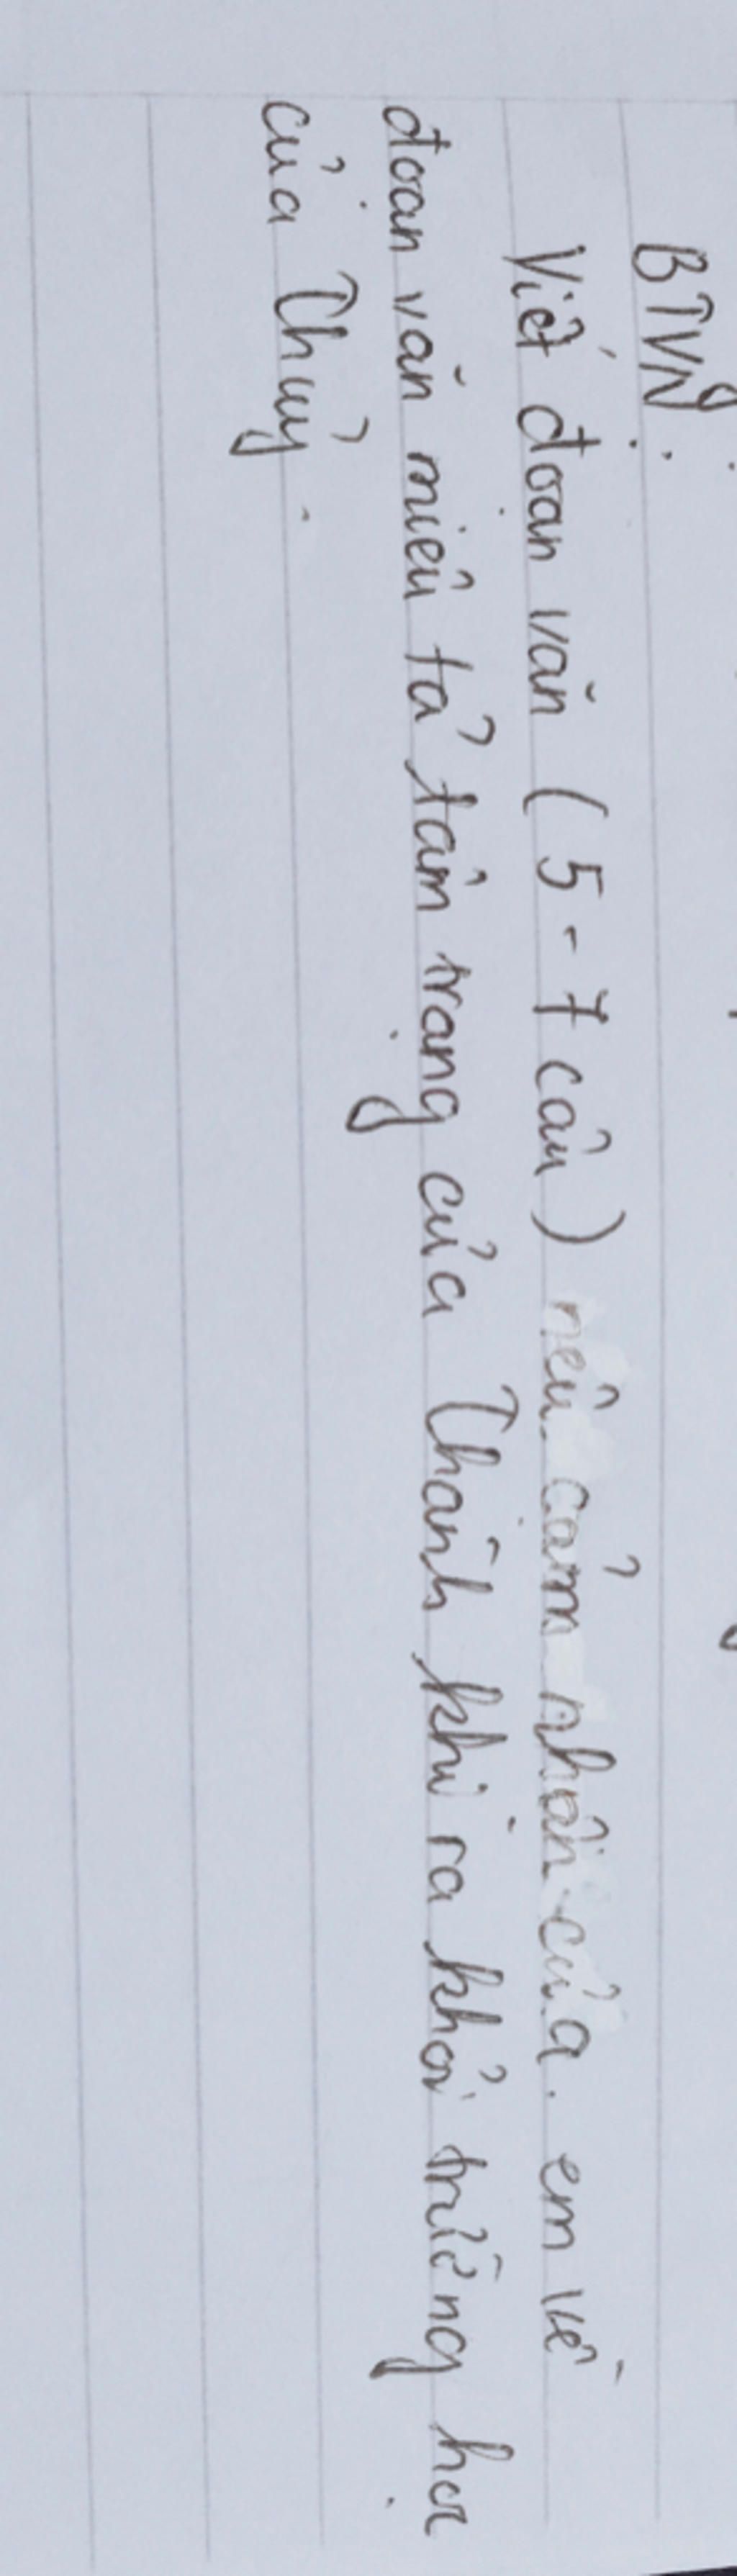 BTVN:
Viết đoạn văn (5-7 câu) nêu cảm nhận của em về
đoạn văn miêu tả tâm trạng của Thành khi ra khỏi trường học
của Thủy.